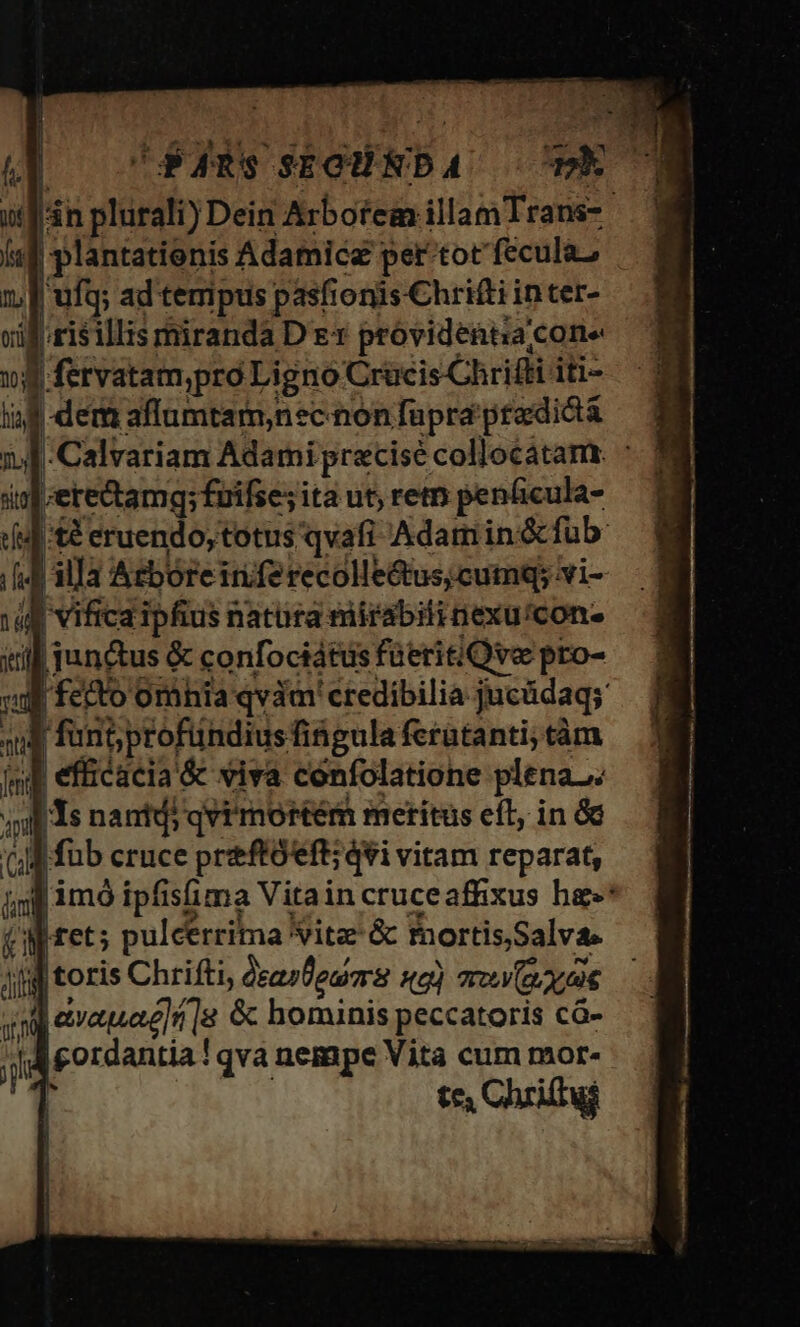 PARS SECUNDA
in plurali) Dein Arborem illam Trans-
plantationis Adamicæ per tot ſecula
uſq; ad tempus pasſionis Chriſti in ter-
ris illis miranda DEI providentia con-
ſervatam, pro Ligno Crucis Chriſti iti-
dem aſſumtam, nec non ſupra prædictâ
Calvariam Adami præcisè collocatam
erectamq; fuiſse; ita ut, rem penſicula-
tè eruendo, totus qvaſi Adam in & ſub
illa Arbore in ſe recollectus, cumq; vi-
vifica ipſius natura mirabili nexu con-
junctus & conſociatus fuerit. Qvæ pro-
fecto omnia qvàm credibilia jucūdaq;
ſunt, profundius ſingula ſcrutanti, tàm
efficacia & viva conſolatione plena.
Is namq; qvi mortem meritus eſt, in &
ſub cruce præſtò eſt; qvi vitam reparat,
imò ipſisſima Vita in cruce affixus hæ-
ret; pulcerrima vitæ & mortis, Salva-
toris Chriſti, θεανθρώπȣ καὶ
& hominis peccatoris cō-
cordantia! qva nempe Vita cum mor-
te, Chriſtus